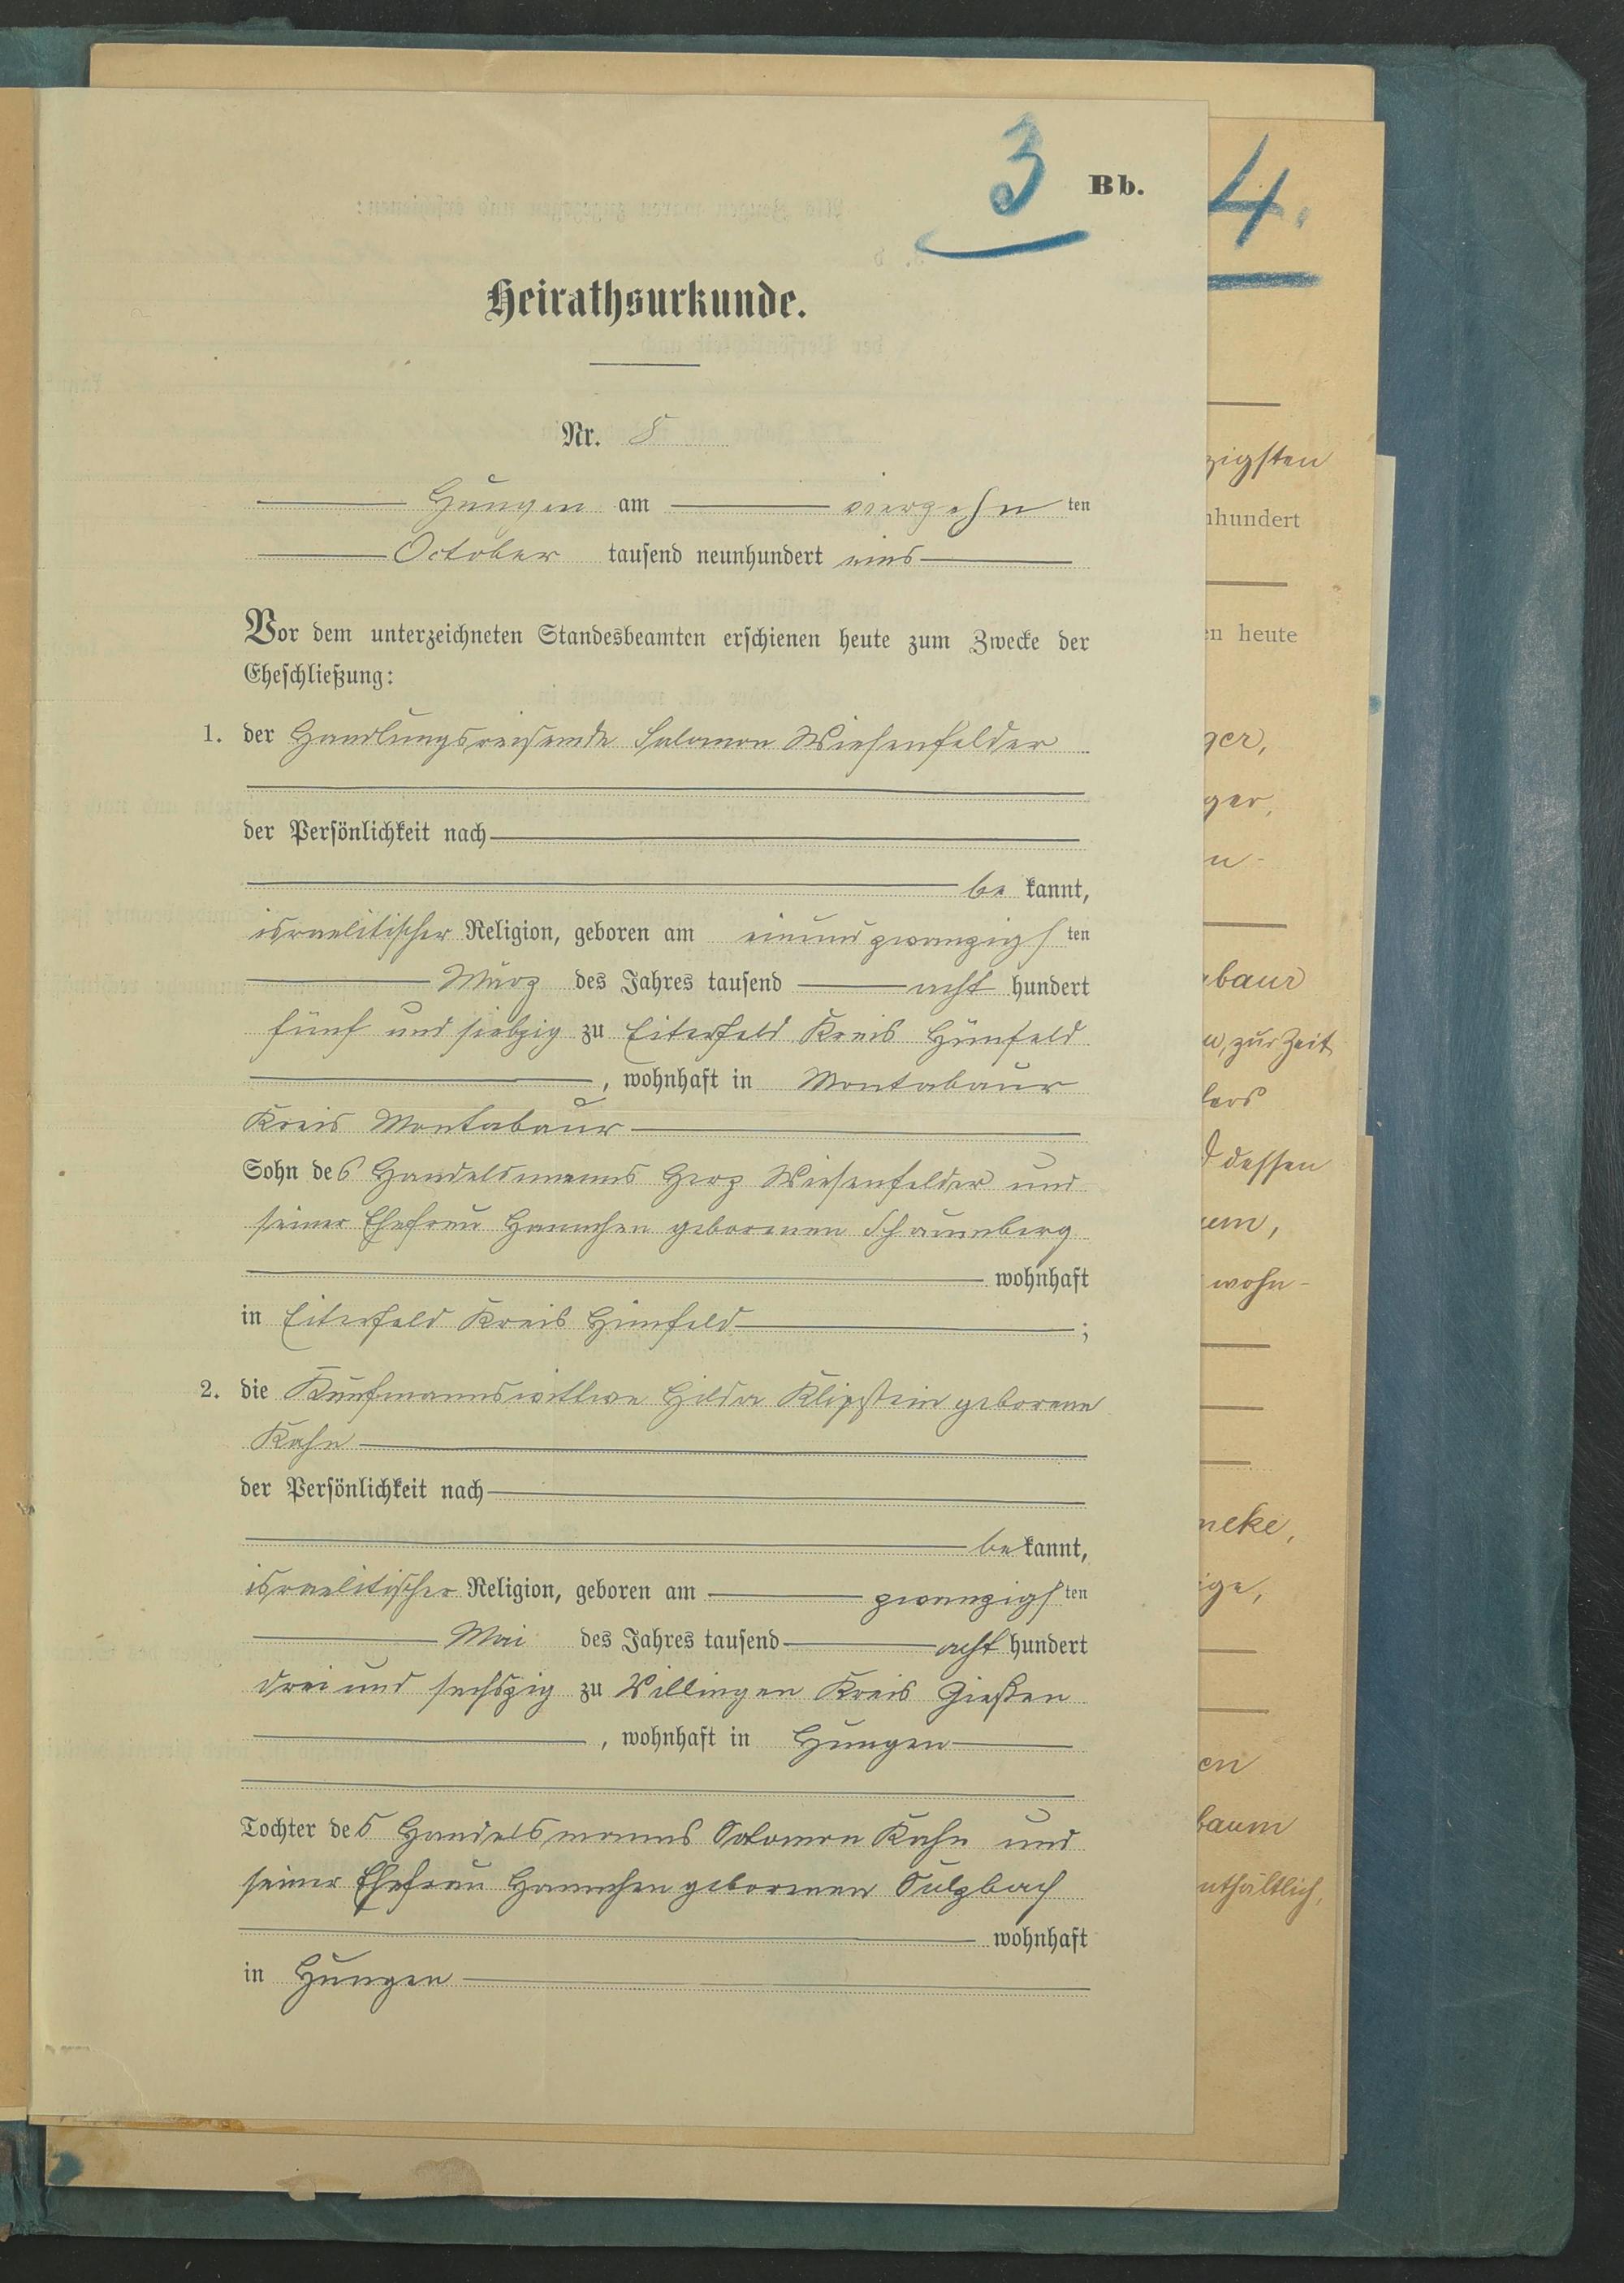 3
Bb.
4.
Heirathsurkunde.
Nr. 8
Hungen am vierzehn ten
October tausend neunhundert eins
Vor dem unterzeichneten Standesbeamten erschienen heute zum Zwecke der
Eheschließung:
1. der Handlungsreisende Salomon Wiesenfelder
der Persönlichkeit nach
be kannt,
israelitischer Religion, geboren am einundzwanzigs ten
März des Jahres tausend acht hundert
fünf und siebzig zu Eiterfeld Kreis Hünfeld
, wohnhaft in Montabaur
Kreis Montabaur
Sohn des Handelsmanns Herz Wiesenfelder und
seiner Ehefrau Hannchen geborenen Schaumberg
wohnhaft
in Eiterfeld Kreis Hünfeld ;
2. die Kaufmannswittwe Hilda Klippstein geborene
Kahn
der Persönlichkeit nach
be kannt,
israelitischer Religion, geboren am zwanzigs ten
Mai des Jahres tausend acht hundert
drei und sechszig zu Villingen Kreis Gießen
, wohnhaft in Hungen
Tochter des Handelsmanns Salomon Kahn und
seiner Ehefrau Hannchen geborenen Sulzbach
wohnhaft
in Hungen
zigsten
nhundert
en heute
ger,
ger,
n-
abaur
n, zur Zeit
lers
d dessen
um,
wohn-
neke,
ige,
en
baum
nthältlich,